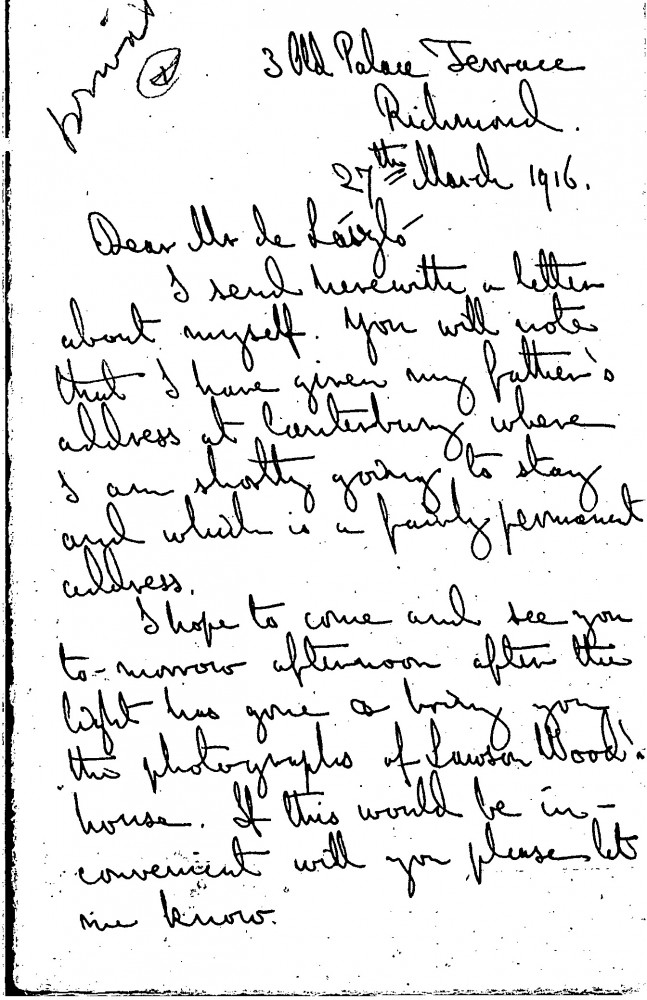 private
3 Old Palace Terrace
Richmond.
27th March 1916.
Dear Mr de László
I send herewith a letter
about myself. You will note
that I have given my father's
address at Canterbury where
I am shortly going to stay
and which is a fairly permanent
address.
I hope to come and see you
to-morrow afternoon after the
light has gone & bring you
the photographs of Lawson Wood's
house. If this would be in-
convenient will you please let
me know.